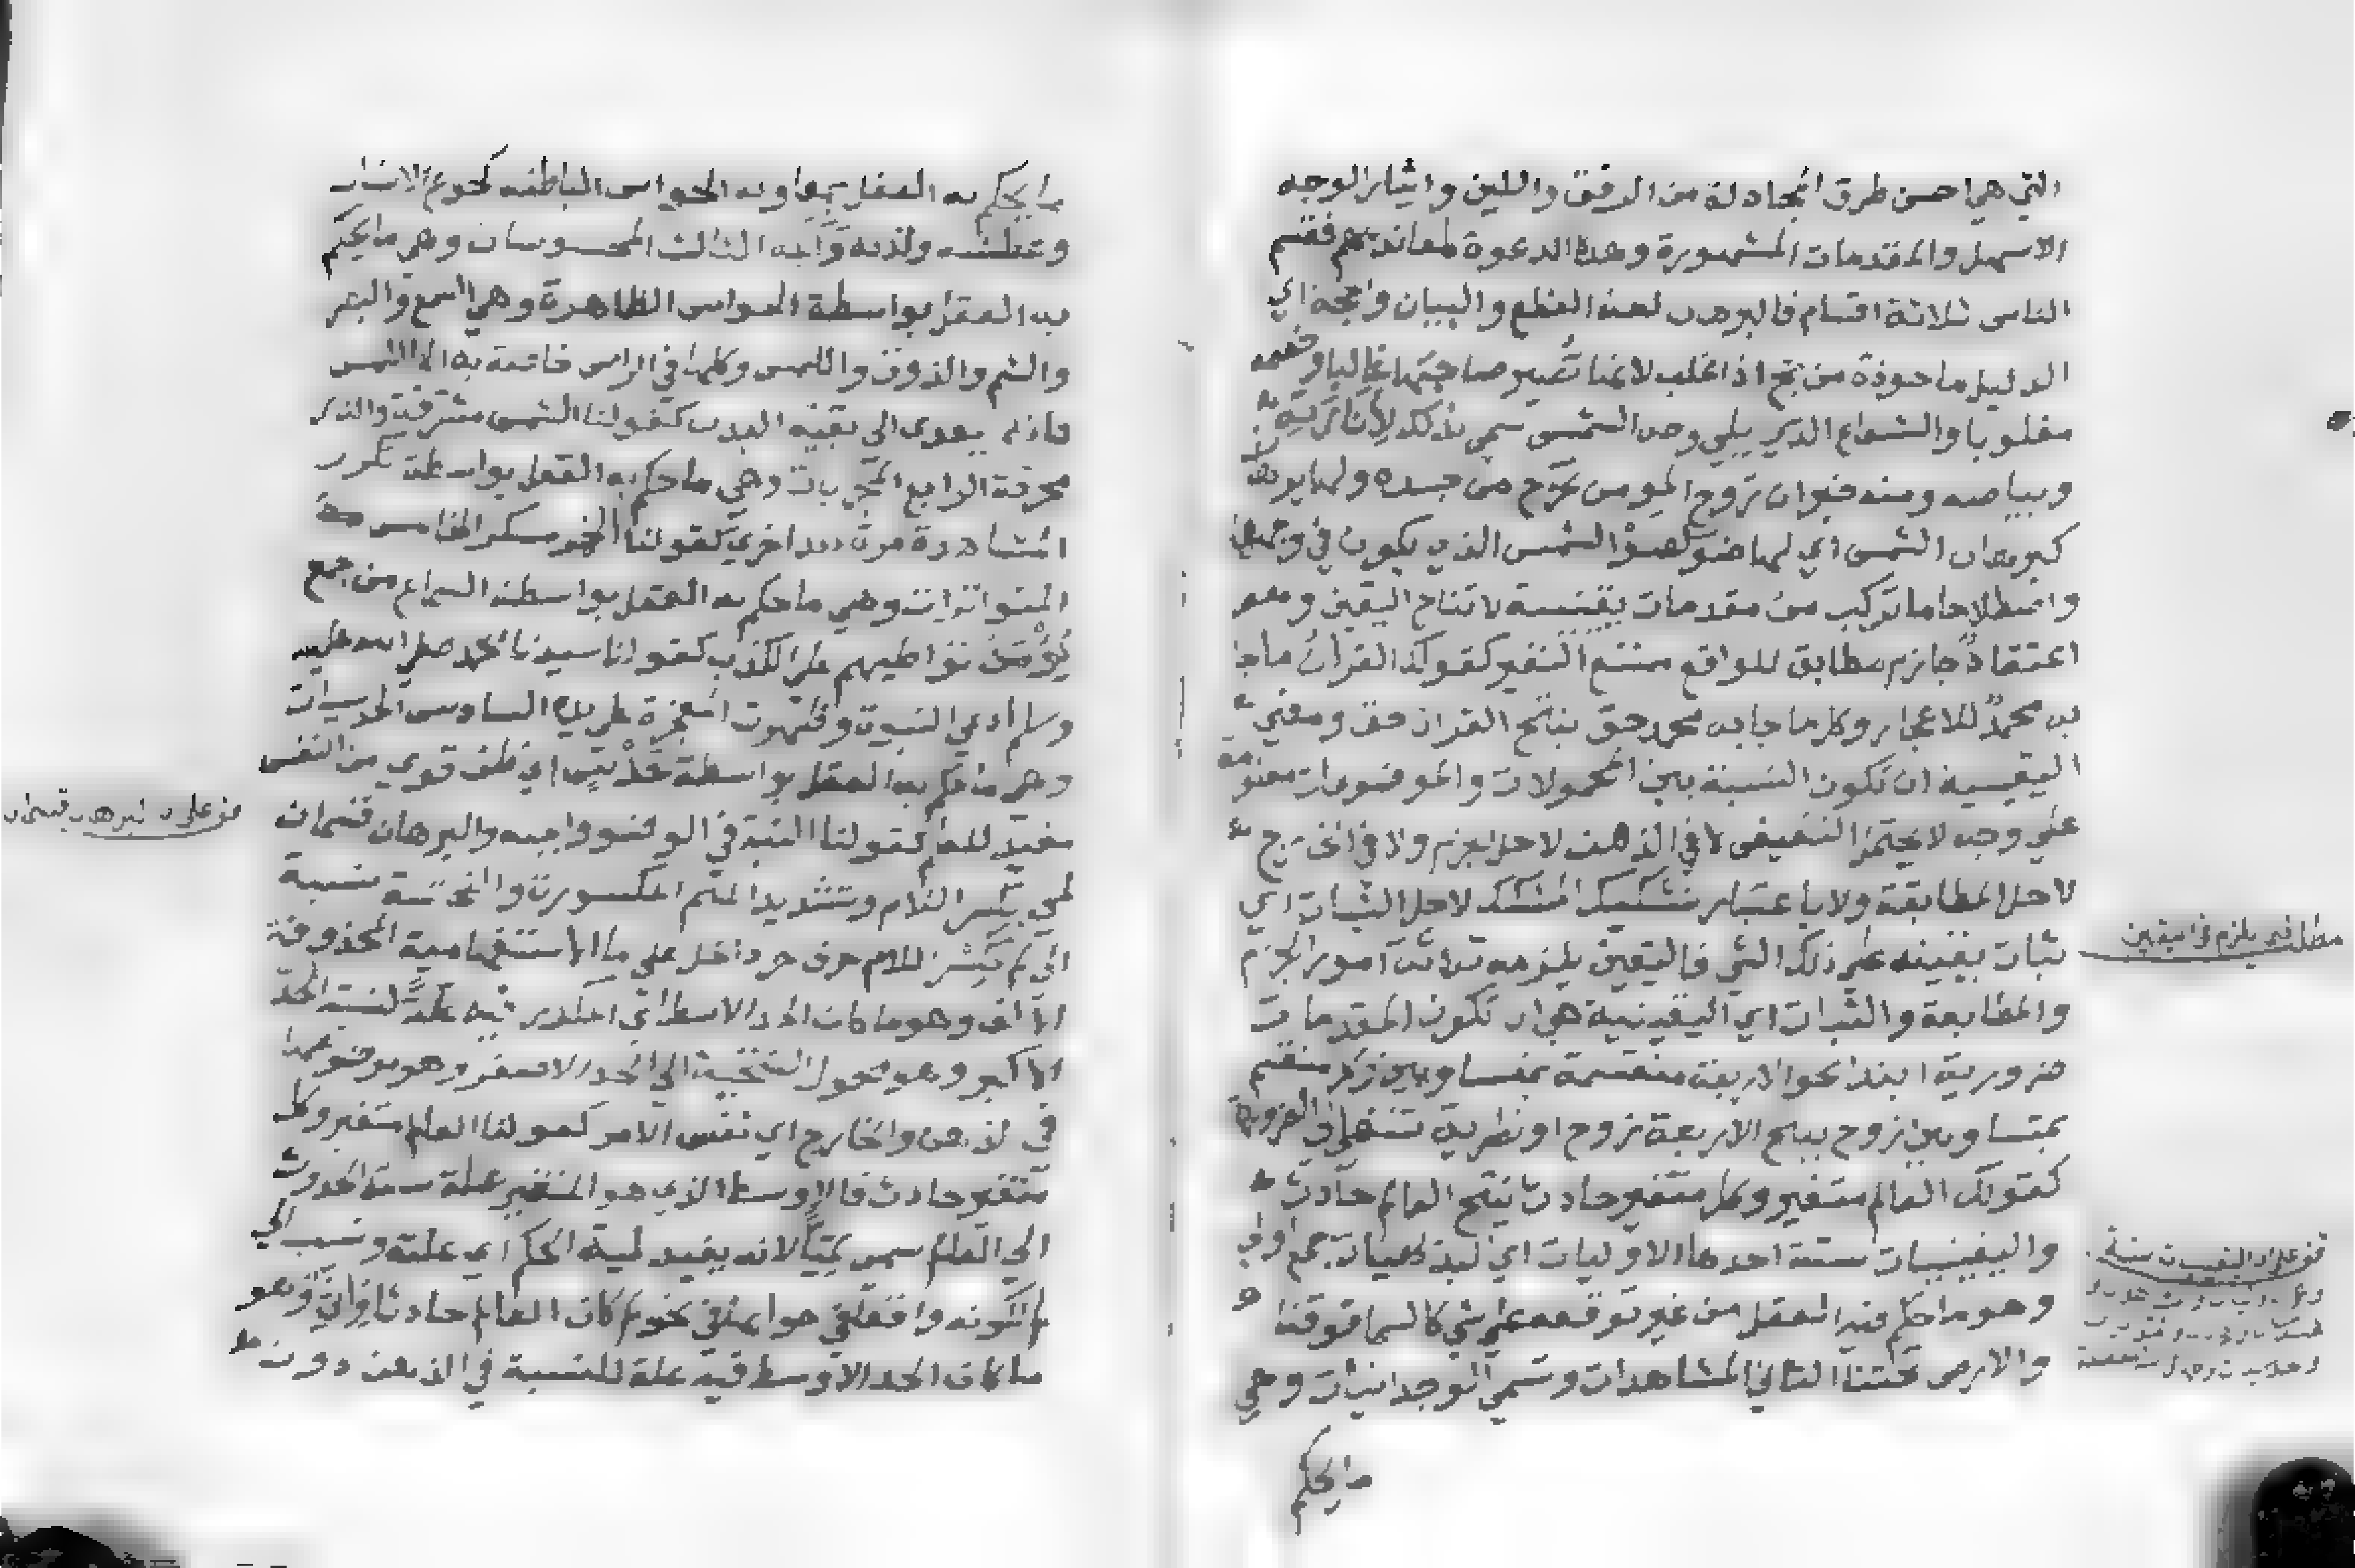 التي هي احسن طرق المجادلة من الرفق واللين وايثار الوجه
الاسهل والمقدمات المشهورة وهذه الدعوة لمعانديهم فقسم
الناس ثلاثة اقسام فالبرهان لغة القطع والبيان والحجة اي
الدليل ماخوذة من حج اذا غلب لانها تصير صاحبها غالبا وخصمه
مغلوبا والشعاع الذي يلي وجه الشمس سمي بذلك
وبياضه ومنه خبر ان روح المومن تخرج من جسده ولها برهان
كبرهان الشمس اي لها ضو كضوء الشمس الذي يكون في وجهها
واصطلاحا ما تركب من مقدمات يقينية لانتاج اليقين وهو
اعتقاد جازم مطابق للواقع ممتنع التغير كقولك القران ما جا
به محمد للاعجاز وكل ما جا به محمد حق ينتج القران حق ومعني
اليقينية ان تكون النسبة بين المحمولات والموضوعات معلومة
علي وجه لا يحتمل النقيض لا في الذهن لاجل الجزم ولا في الخارج
لاجل المطابقة ولا باعتبار تشكيك المشكك لاجل الثبات اي
ثبات يقينه علي ذلك الشي فاليقين يلزمه ثلاثة امور الجزم
والمطابقة والثبات اي اليقينية هي ان تكون المقدمات
ضرورية ابتدا نحو الاربعة منقسمة بمتساويين وكل منقسم
بمتساويين زوج ينتج الاربعة زوج او نظرية تنتهي الي الضرورية
كقولك العالم متغير وكل متغير حادث ينتج العالم حادث
واليقينيات ستة احدها الاوليات اي البديهيات جمع اولي
وهو ما حكم فيه العقل من غير توقفه علي شي كالسما فوقنا
والارض تحتنا الثاني المشاهدات وتسمي الوجدانيات وهي
ما يحكم
مطلب فيما يلزم في اليقين
قف علي ان اليقينيات ستة
ما يحكم به العقل بمعاونة الحواس الباطنة كجوع الانسان
وعطشه ولذته والمه الثالث المحسوسات وهي ما يحكم
به العقل بواسطة الحواس الظاهرة وهي السمع والبصر
والشم والذوق واللمس وكلها في الراس خاصة به الا اللمس
فانه يتعدي الي بقية البدن كقولنا الشمس مشرقة والنار
محرقة الرابع المجربات وهي ما حكم به العقل بواسطة تكرر
المشاهدة مرة بعد اخري كقولنا الخمر مسكر الخامس
المتواترات وهي ما حكم به العقل بواسطة السماع من جمع
يؤمن تواطيهم علي الكذب كقولنا سيدنا محمد صلي الله عليه
وسلم ادعي النبوة وظهرت المعجزة علي يده السادس الحدسيات
وهي ما حكم به العقل بواسطة حدس اي ظن قوي من النفس
مفيد للعلم كقولنا النية في الوضو واجبة والبرهان قسمان
لمي بكسر اللام وتشديد الميم المكسورة والتحتية نسبة
الي لم بكسر اللام حرف جر داخل علي ما الاستفهامية المحذوفة
الالف وهو ما كان الحد الاوسط فيه علة لنسبة الحد
الاكبر وهو محمول النتيجة الي الحد الاصغر وهو موضوعها
في الذهن والخارج اي نفس الامر كقولنا العالم متغير وكل
متغير حادث فالاوسط الذي هو المتغير علة نسبة الحدوث
الي العالم سمي لميا لانه يفيد لمية الحكم اي علته ونسب الي
لم لكونه واقعا في جوابها في نحو لم كان العالم حادثا واني وهو
ما كان الحد الاوسط فيه علة للنسبة في الذهن دون
قف علي ان البرهان قسمان